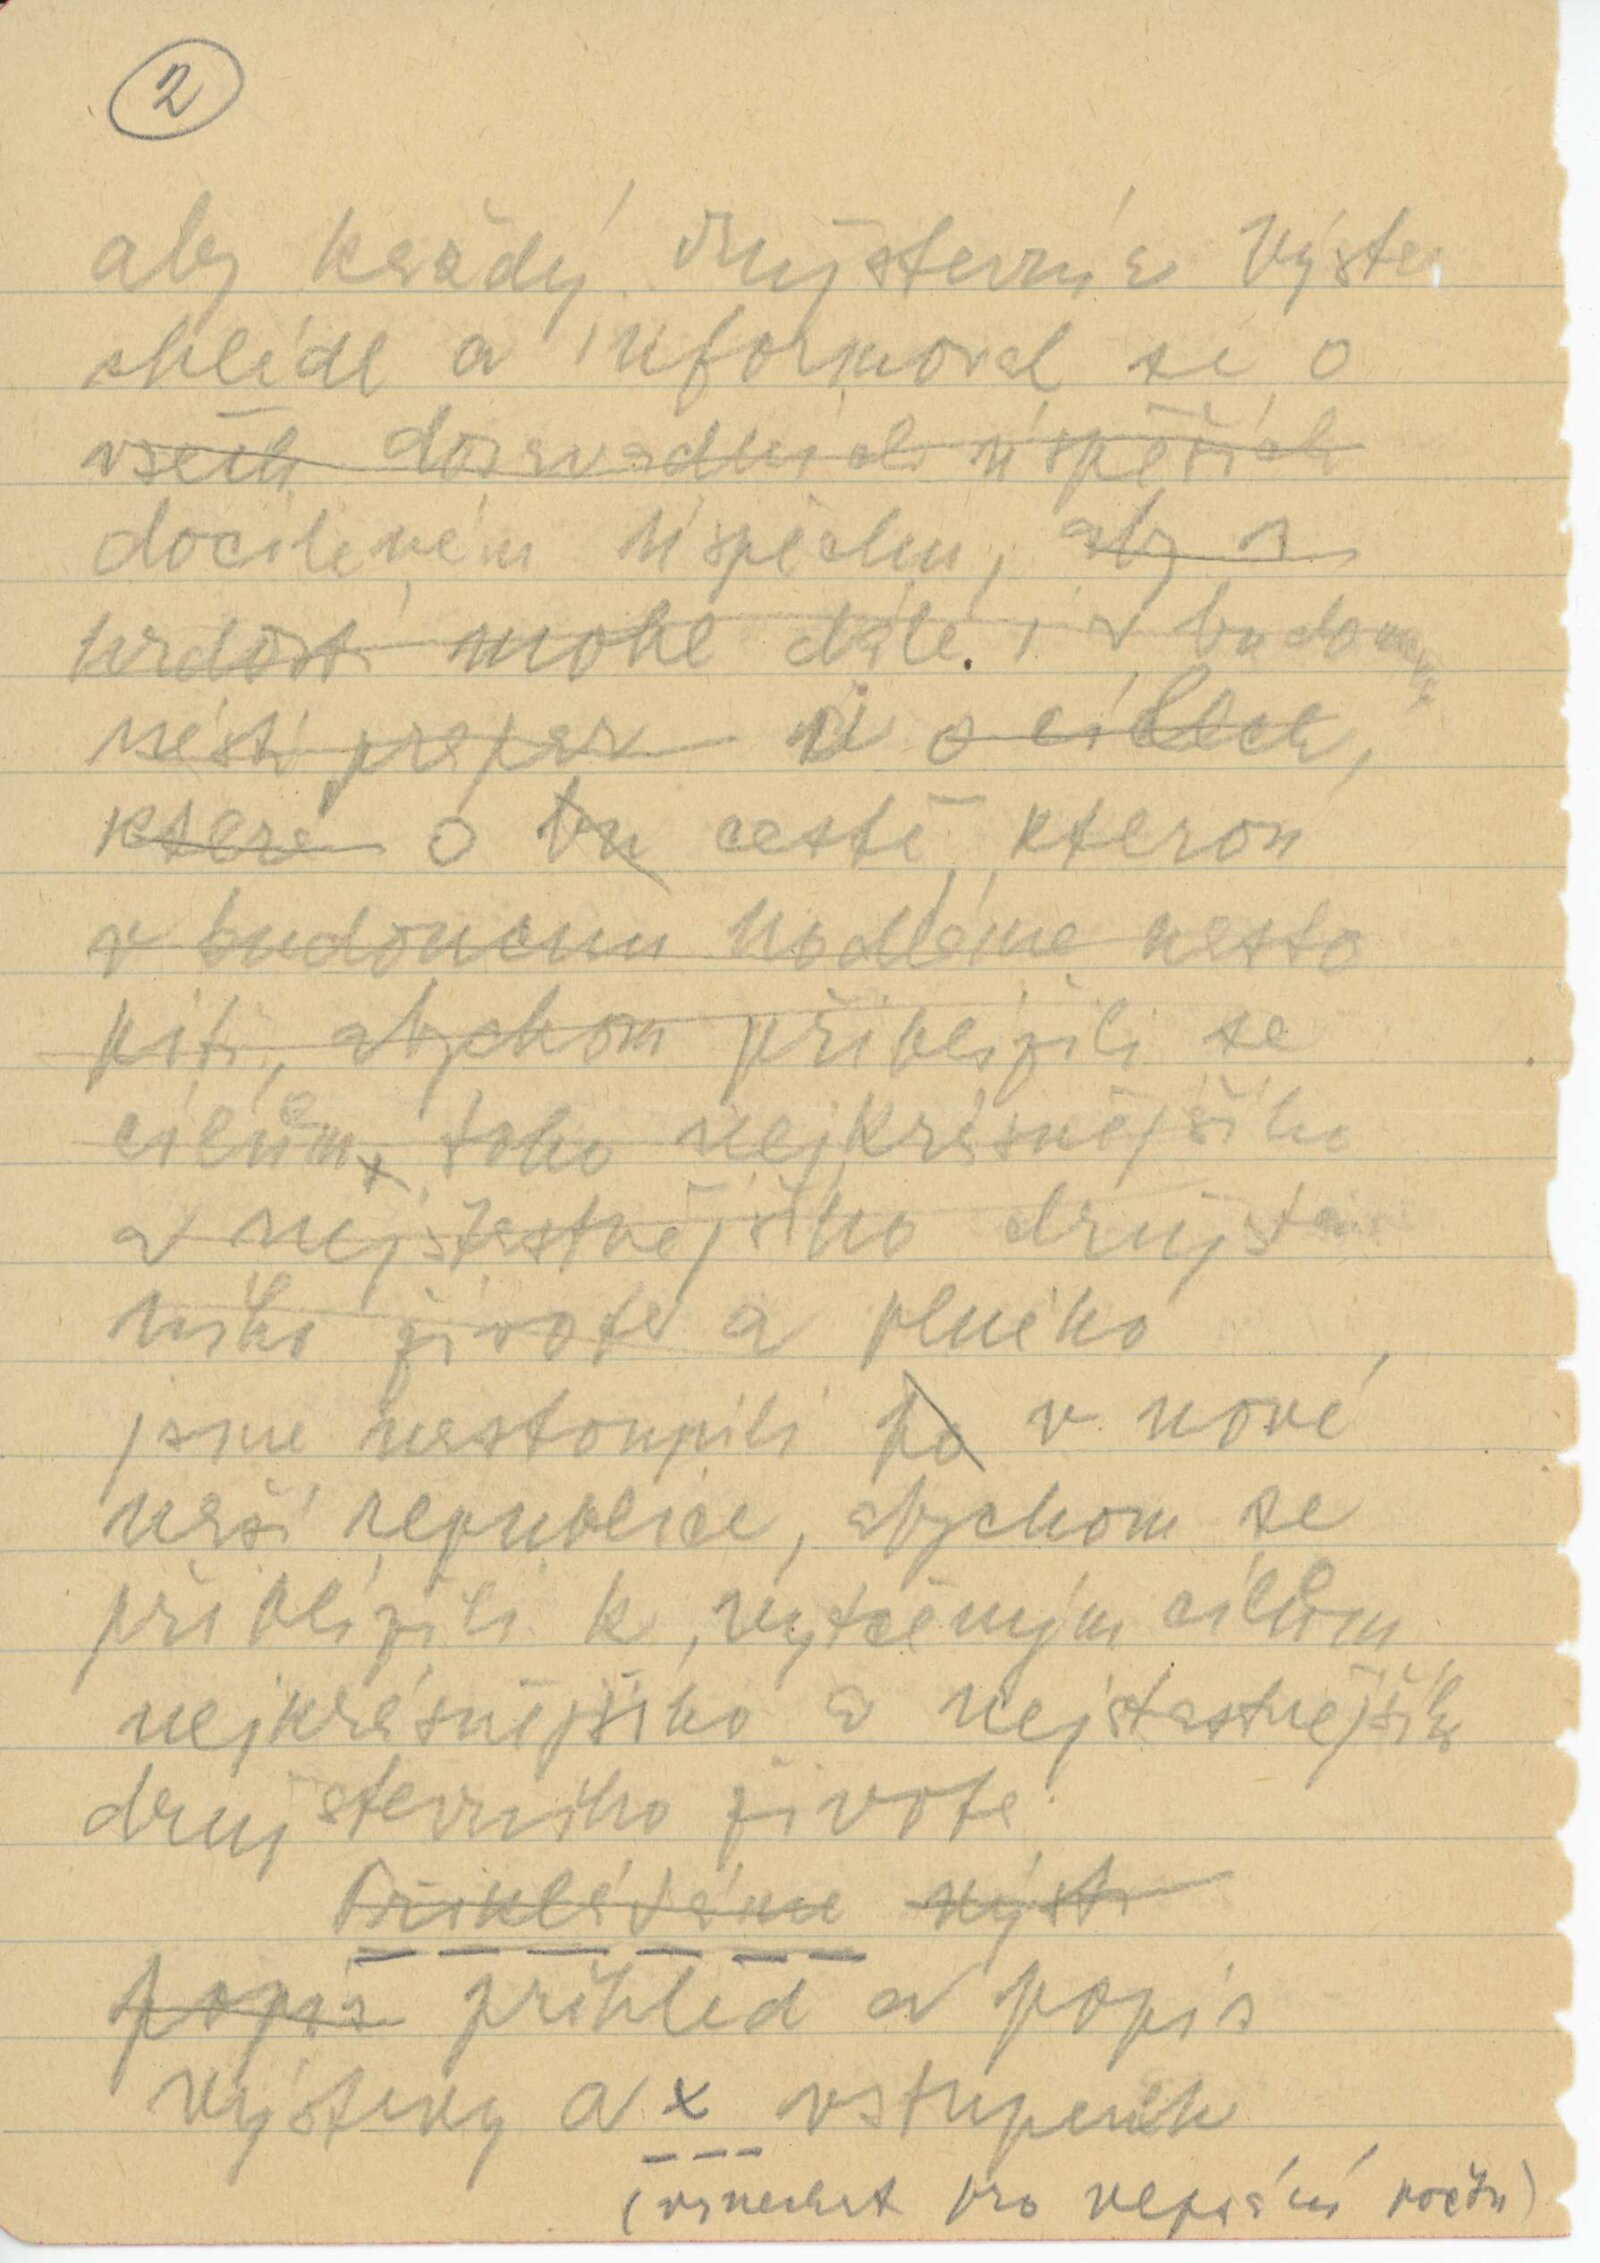 2
aby každý družstevník výsta
shlédl a informoval se o
všech dosavadních úspěších
docíleném úspěchu, aby s
hrdostí mohl dále i v budoucnu
nésti prapor i o cílech,
které o tu cestě, kterou
v budoucnu hodláme nasto
piti, abychom přiblížili se
cílům toho nejkrásnějšího
a nejšťastnějšího družstev
ního života a plného
jsme nastoupili po v nové
naší republice, abychom se
přiblížili k vytčeným cílům
nejkrásnějšího a nejštastnějšího
družstevního života.
Přikládáme výst
popis přihled a popis
výstavy a x vstupenek
(vynechat pro vepsání počtu)